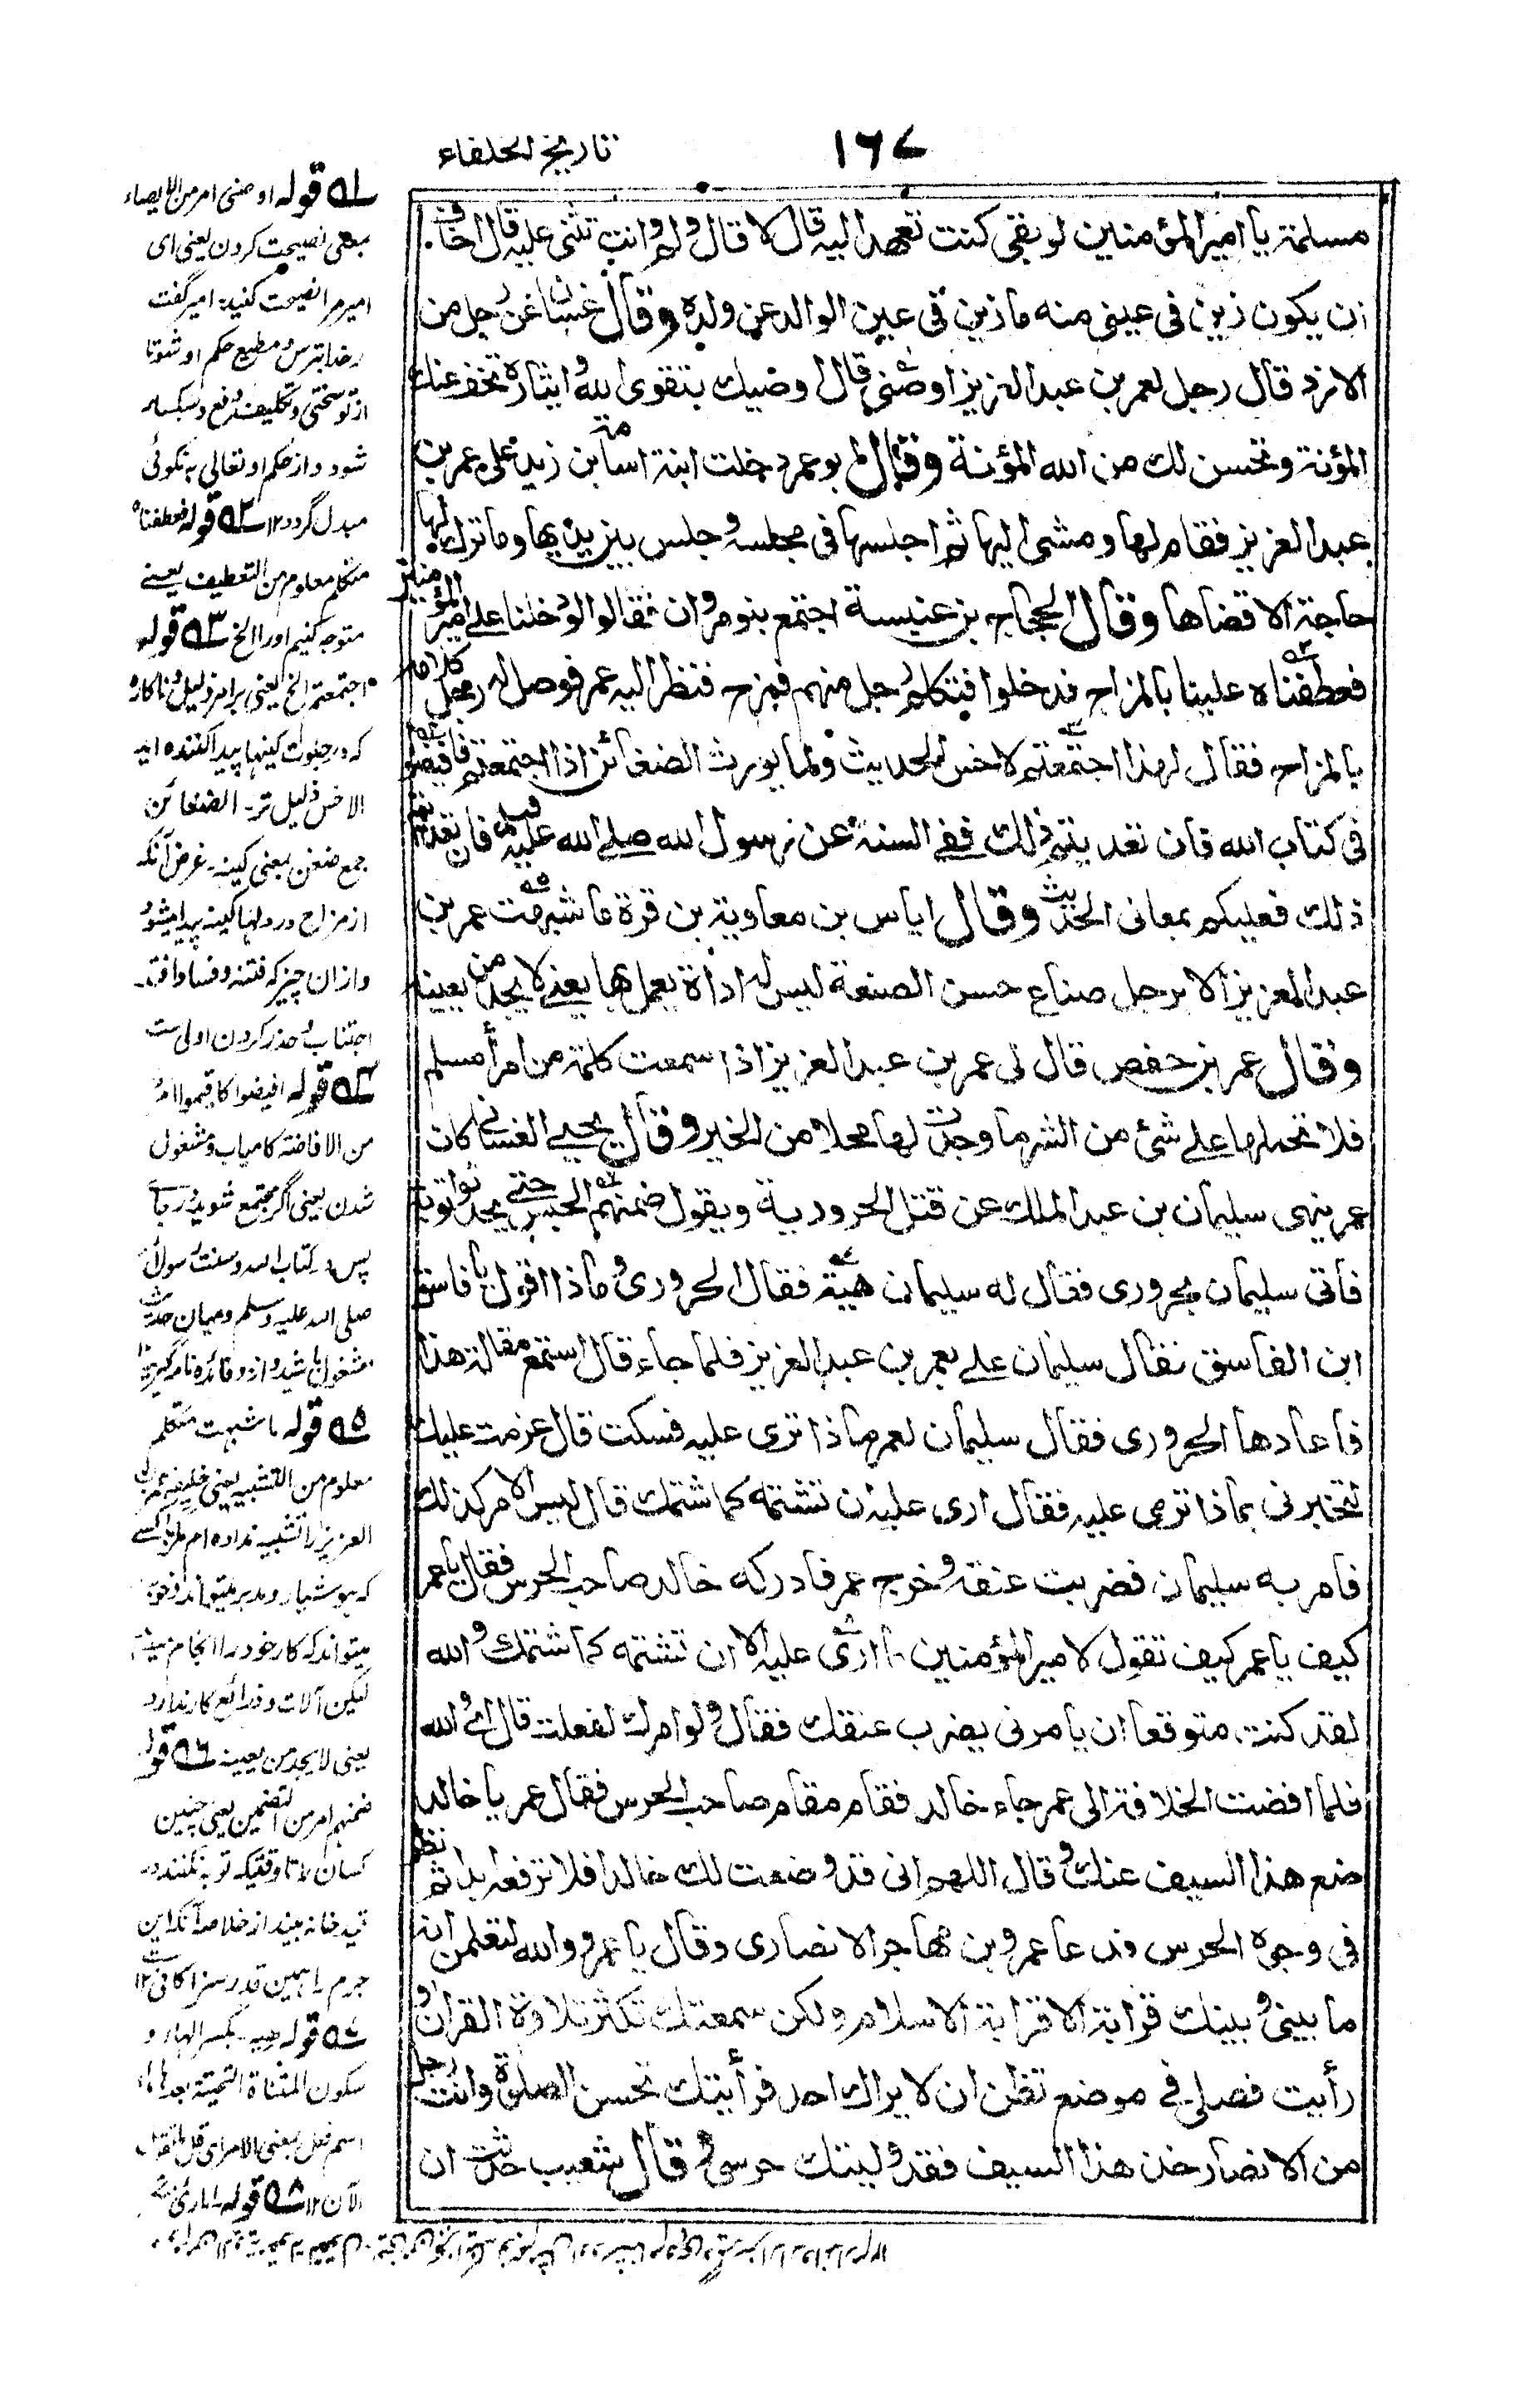 تاريخ الخلفاء
١٦٧
مسلمة يا امير المؤمنين لو بقى كنت تعهد اليه قال لا قال ولم وانت تثنى عليه قال اخاف
ان يكون زين فى عينى منه ما زين فى عين الوالد عن ولده وقال غسان عن رجل من
الازد قال رجل لعمر بن عبد العزيز اوصنى قال اوصيك بتقوى الله وايثاره تخف عنك
المؤنة وتحسن لك من الله المؤنة وقال ابو عمر دخلت ابنة اسامة بن زيد على عمر بن
عبد العزيز فقام لها ومشى اليها ثم اجلسها فى مجلسه وجلس بين يديها وما ترك لها
حاجة الا قضاها وقال الحجاج بن عنبسة اجتمع بنو مروان فقالوا لو دخلنا على امير المؤمنين
فعطفناه علينا بالمزاح فدخلوا فتكلم رجل منهم فمزح فنظر اليه عمر فوصل له رجل كلامه
بالمزاح فقال لهذا اجتمعتم لاخس الحديث ولما يورث الضغائن اذا اجتمعتم فافيضوا
فى كتاب الله فان تعديتم ذلك ففى السنة عن رسول الله صلے الله عليه فان تعديتم
ذلك فعليكم بمعانى الحديث وقال اياس بن معاوية بن قرة ما شبهت عمر بن
عبد العزيز الا برجل صناع حسن الصنعة ليس له اداة يعمل بها يعنى لا يجد من يعينه
وقال عمر بن حفص قال لى عمر بن عبد العزيز اذا سمعت كلمة من امرأ مسلم
فلا تحملها علے شئ من الشر ما وجدت لها محملا من الخير وقال يحيے الغسانى كان
عمر ينهى سليمان بن عبد الملك عن قتل الحرورية ويقول ضمنهم الحبس حتى يحدثوا توبة
فأتى سليمان بحرورى فقال له سليمان هيه فقال الحرورى وماذا اقول يا فاسق
ابن الفاسق فقال سليمان علے بعمر بن عبد العزيز فلما جاء قال استمع مقالة هذا
فاعادها الحرورى فقال سليمان لعمر ماذا ترى عليه فسكت قال عزمت عليك
لتخبرنى بماذا ترى عليه فقال ارى عليه ان تشتمه كما شتمك قال ليس الامر كذلك
فامر به سليمان فضربت عنقه وخرج عمر فادركه خالد صاحب الحرس فقال يا عمر
كيف يا عمر كيف تقول لامير المؤمنين ما ارى عليه الا ان تشتمه كما شتمك والله
لقد كنت متوقعا ان يامرنى بضرب عنقك فقال ولو امرك لفعلت قال اى والله
فلما افضت الخلافة الى عمر جاء خالد فقام مقام صاحب الحرس فقال عمر يا خالد
ضع هذا السيف عنك وقال اللهم انى قد وضعت لك خالدا فلا ترفعه ابدا ثم نظر
فى وجوه الحرس فدعا عمرو بن مهاجر الانصارى وقال يا عمرو والله لتعلمن انه
ما بينى وبينك قرابة الا قرابة الاسلام ولكن سمعتك تكثر تلاوة القران و
رأيت فصلى فى موضع تظن ان لا يراك احد فرأيتك تحسن الصلوة وانت رجل
من الانصار خذ هذا السيف فقد وليتك حرسى و قال شعيب حدثت ان
۱ قوله اوصنى امر من الايصاء
بمعنى نصيحت كردن يعنى اى
امير مرا نصيحت كنيد امير گفت
شود و از حكم او تعالى به نكوئى
مبدل گردد ۱۲ ۲ قوله فعطفناه
متكلم معلوم من التعطيف يعنے
متوجه كنيم او را الخ ۳ قوله
اجتمعتم الخ يعنى براى امر ذليل و ناكاره
الاخس ذليل تر۔ الضغائن
جمع ضغن بمعنى كينه۔ غرض آنكه
از مزاح در دلها كينه پيدا ميشود
و ازان چيز كه فتنه و فساد افتد
اجتناب و حذر كردن اولى ست
۴ قوله افيضوا كاقيموا امر
من الافاضة كامياب و مشغول
شدن يعنى اگر مجتمع شويد
پس در كتاب الله و سنت رسول الله
صلى الله عليه وسلم و ميان حديث
مشغول باشيد و ازو فائده
۵ قوله ما شبهت متكلم
معلوم من التشبيه يعنى خليفه عمر بن
العزيز را تشبيه نداده ام مگر با كسے
ميتواند كه كار خود را انجام
ليكن آلات و ذرائع كار ندارد
يعنى لا يجد من يعينه ۶ قوله
ضمنهم امر من التضمين يعنى چنين
كسان را تا وقتيكه توبه نكنند در
قيد خانه بيندازد خلاصه آنكه اين
جرم را همين قدر سزا كافى ست ۱۲
۷ قوله هيه بكسر الهاء و
سكون المثناة التحتية بعدها هاء
اسم فعل بمعنى الامر اى قل
الآن ۱۲ ۸ قوله ما ارى